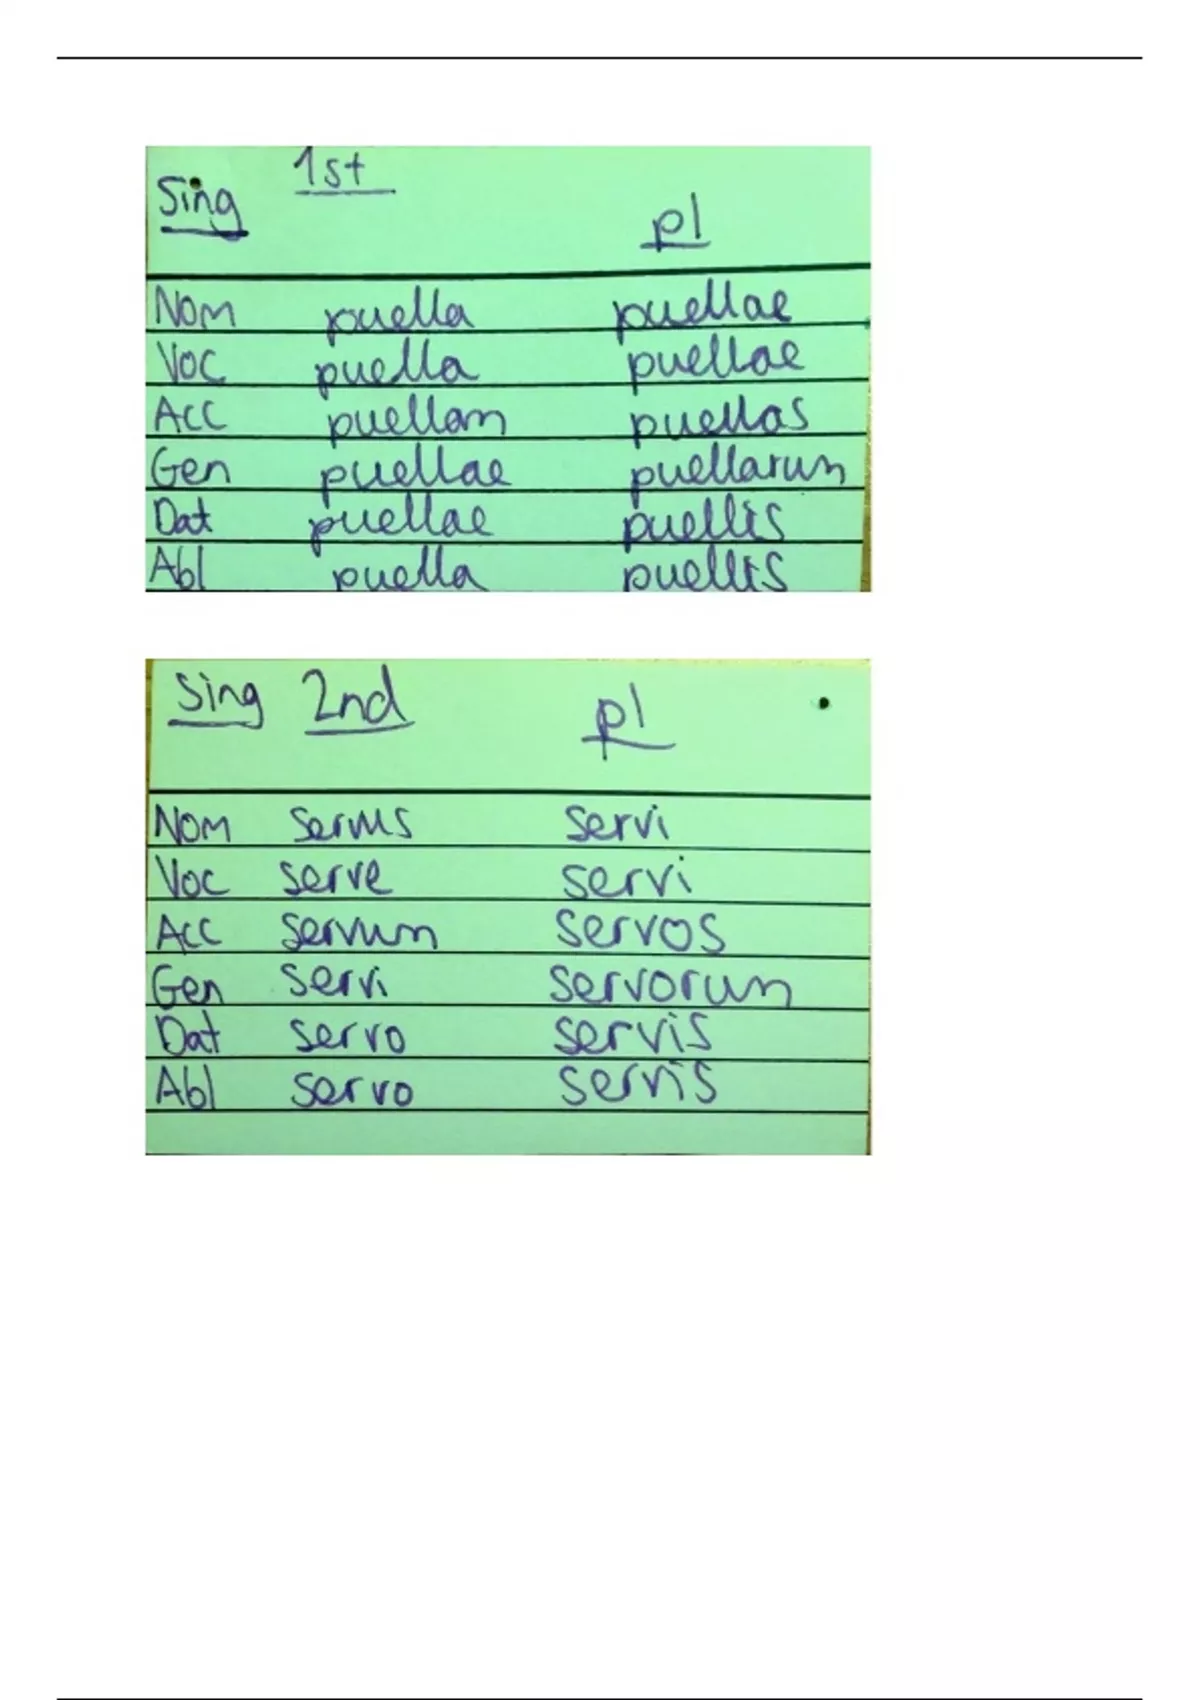 1st
Sing pl
Nom puella puellae
Voc puella puellae
Acc puellam puellas
Gen puellae puellarum
Dat puellae puellis
Abl puella puellis
Sing 2nd pl
Nom servus servi
Voc serve servi
Acc servum servos
Gen servi servorum
Dat servo servis
Abl servo servis